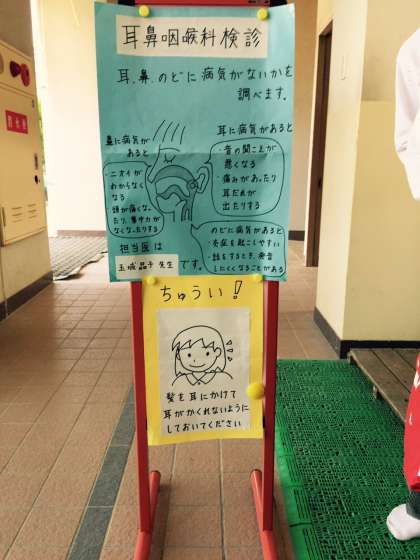 耳鼻咽喉科検診
耳、鼻、のどに病気がないかを
調べます。
鼻に病気が
あると
・ニオイが
わからなく
なる
・頭が痛くなっ
たり、集中力が
なくなったりする
耳に病気があると
・音の聞こえが
悪くなる
・痛みがあったり
耳だれが
出たりする
のどに病気があると
・炎症を起こしやすい
・話をするとき、発音
しにくくなることがある
担当医は
玉城晶子先生です。
ちゅうい!
髪を耳にかけて
耳がかくれないように
しておいてください
消火栓